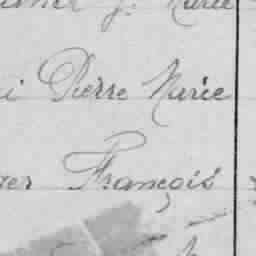 J. Marie
i Pierre Marie
er François